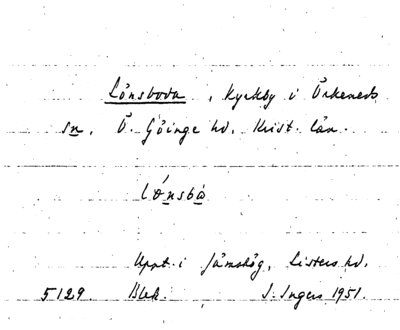 Lönsboda, kyrkby i Örkeneds
sn, Ö. Göinge hd, Krist. län.
lǿnsbå
Uppt. i Jämshög, Listers hd,
5129. Blek. I. Ingers 1951.